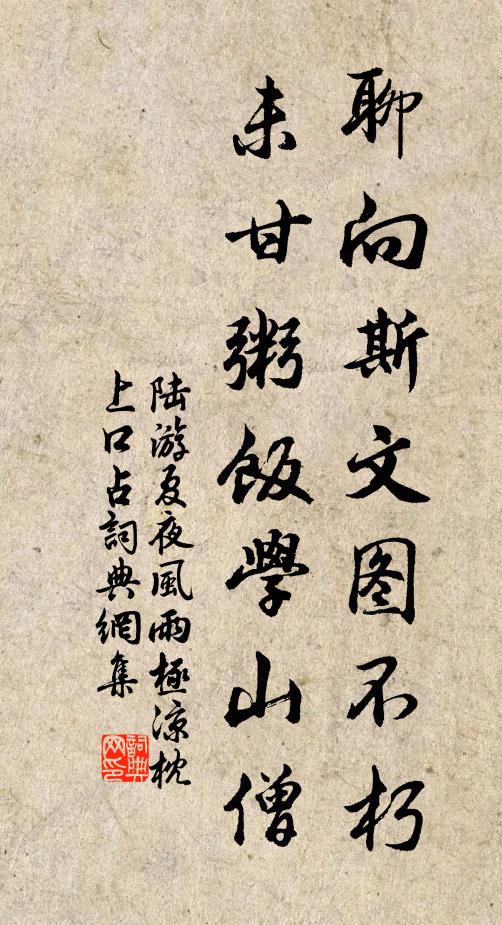 聊向斯文图不朽
未甘粥飯學山僧
陆游夏夜風雨極涼枕
上口占詞典網集
詞典
网印